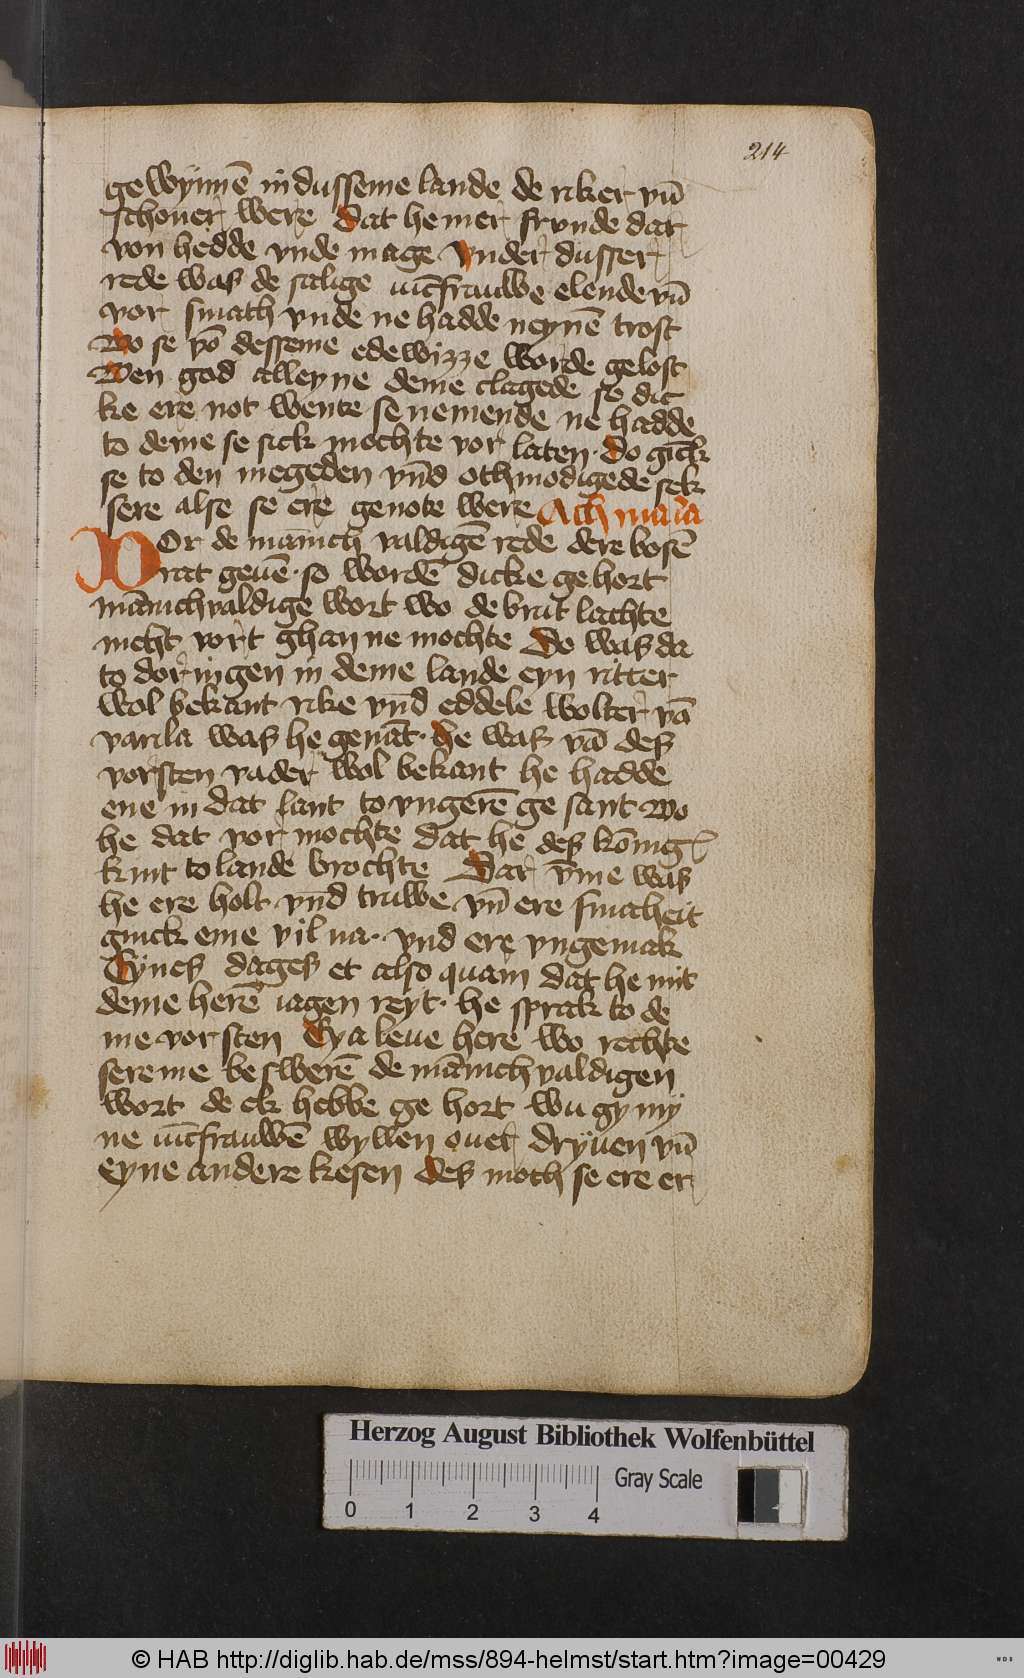 214
gewỳnnē in dusseme lande de riker vn̄
schoner were dat he mer frvnde dar
von hedde vnde mage vnder dusser
rede was de salige iūcfrauwe elende vn̄
vor smath vnde ne hadde neynē trost
wo se vō desseme edewizze worde gelost
wen god alleyne deme clagede se dic
ke ere not wente se nemende ne hadde
to deme se sick mochte vor laten· do gīck
se to den megeden vn̄d othmodigede sek
sere alse se ere genote were Ach maria
VOr de mānich valdigē rede dere bosē
rat geuē· so wordē dicke ge hort
mānichvaldige wort wo de brut lachte
nicht vort ghan ne mochte Do was da
to doringen in deme lande eyn ritter
wol bekant rike vn̄d eddele wolter vā
varila was he genāt· he was vā des
vorsten vader wol bekant he hadde
ene in dat lant to vngerē ge sant wo
he dat vor mochte dat he des kōnig
kint to lande brochte Dar v̄me was
he ere holt vn̄d truwe vn̄ ere smaheit
ginck eme vil na· vnd ere vngemak
Eynes dages et also quam dat he mit
deme herē iagen reyt· he sprak to de
me vorsten Eya leue here wo rechte
sere me beswerē de mānichvaldigen
wort de ek hebbe ge hort wu gy mỳ
ne iūcfrauwē wyllen ouer dryuen vn̄
eyne andere kesen des moth se ere er
Herzog August Bibliothek Wolfenbüttel
Gray Scale
0 1 2 3 4
© HAB http://diglib.hab.de/mss/894-helmst/start.htm?image=00429